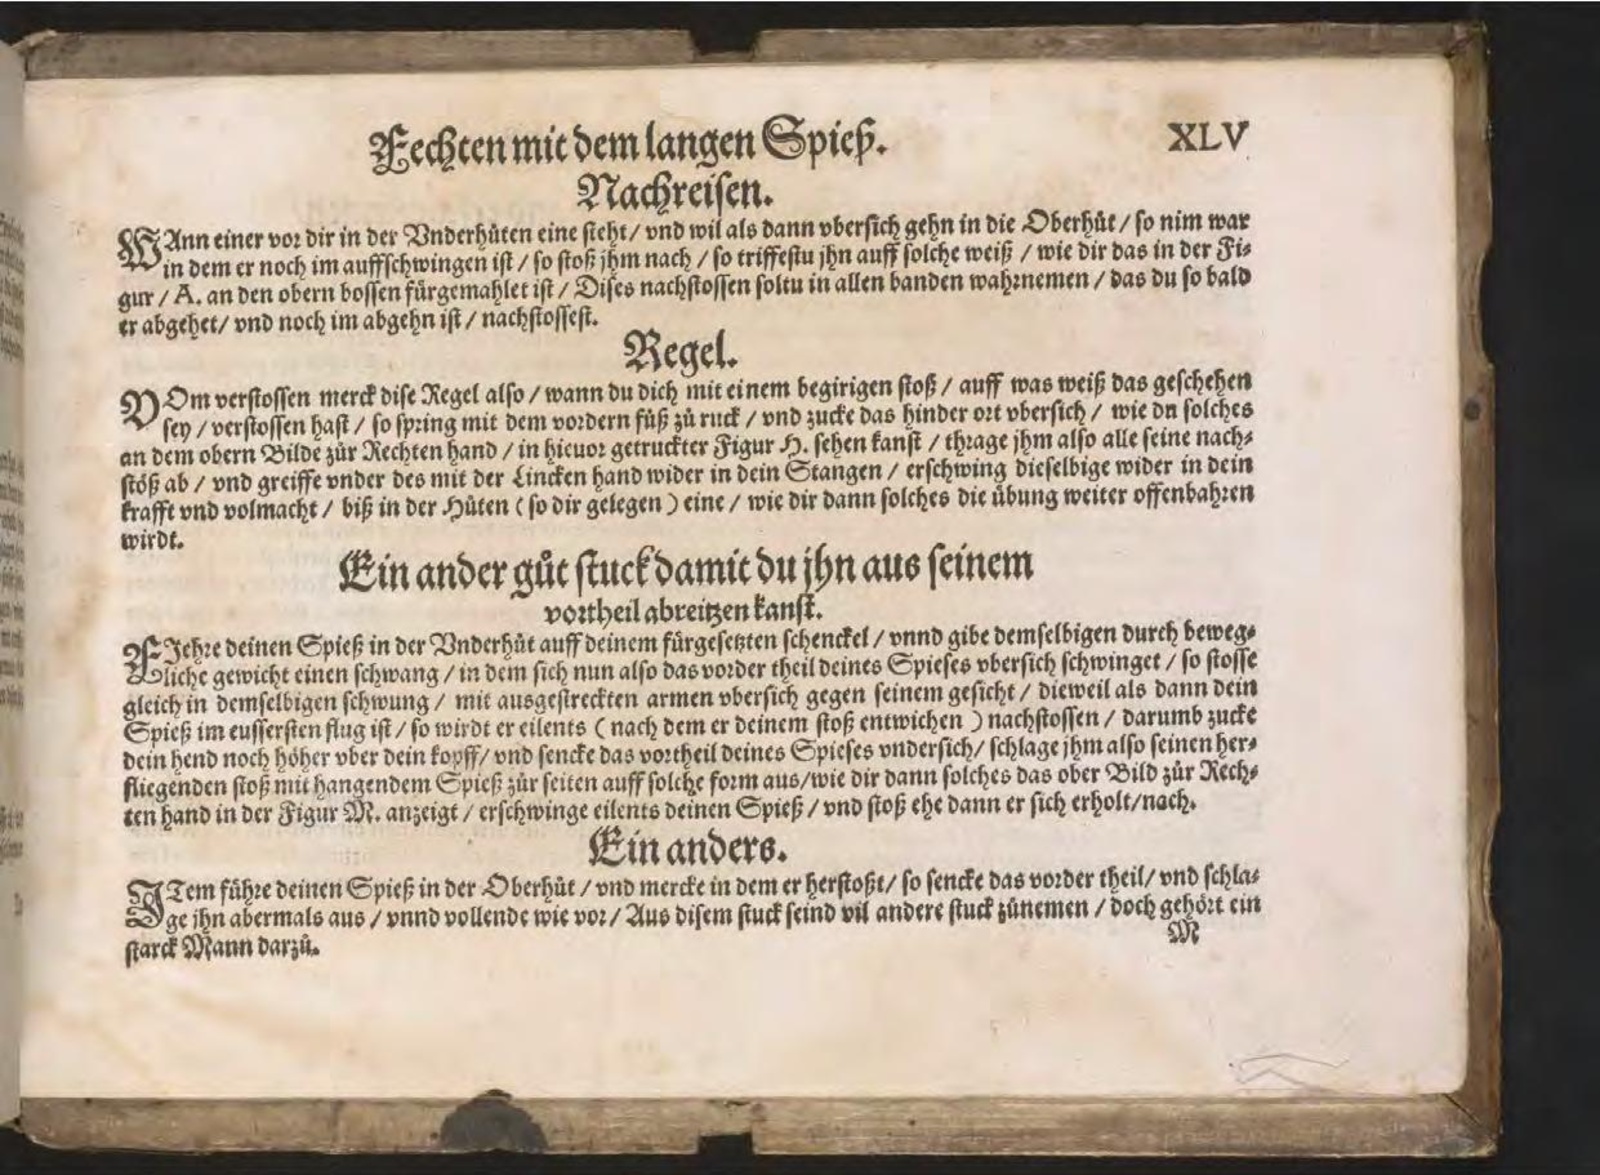 Fechten mit dem langen Spieß.
XLV
Nachreisen.
WAnn einer vor dir in der Vnderhüten eine steht / vnd wil als dann vbersich gehn in die Oberhůt / so nim war
in dem er noch im auffschwingen ist / so stoß jhm nach / so triffestu jhn auff solche weiß / wie dir das in der Fi-
gur / A. an den obern bossen fürgemahlet ist / Dises nachstossen soltu in allen banden wahrnemen / das du so bald
er abgehet / vnd noch im abgehn ist / nachstossest.
Regel.
VOm verstossen merck dise Regel also / wann du dich mit einem begirigen stoß / auff was weiß das geschehen
sey / verstossen hast / so spring mit dem vordern fůß zů ruck / vnd zucke das hinder ort vbersich / wie dn solches
an dem obern Bilde zůr Rechten hand / in hieuor getruckter Figur H. sehen kanst / thrage jhm also alle seine nach-
stöß ab / vnd greiffe vnder des mit der Lincken hand wider in dein Stangen / erschwing dieselbige wider in dein
krafft vnd volmacht / biß in der Hüten ( so dir gelegen ) eine / wie dir dann solches die übung weiter offenbahren
wirdt.
Ein ander gůt stuck damit du jhn aus seinem
vortheil abreitzen kanst.
FJehre deinen Spieß in der Vnderhůt auff deinem fürgesetzten schenckel / vnnd gibe demselbigen durch beweg-
liche gewicht einen schwang / in dem sich nun also das vorder theil deines Spieses vbersich schwinget / so stosse
gleich in demselbigen schwung / mit ausgestreckten armen vbersich gegen seinem gesicht / dieweil als dann dein
Spieß im eussersten flug ist / so wirdt er eilents ( nach dem er deinem stoß entwichen ) nachstossen / darumb zucke
dein hend noch höher vber dein kopff / vnd sencke das vortheil deines Spieses vndersich / schlage jhm also seinen her-
fliegenden stoß mit hangendem Spieß zůr seiten auff solche form aus / wie dir dann solches das ober Bild zůr Rech-
ten hand in der Figur M. anzeigt / erschwinge eilents deinen Spieß / vnd stoß ehe dann er sich erholt / nach.
Ein anders.
JTem führe deinen Spieß in der Oberhůt / vnd mercke in dem er herstoßt / so sencke das vorder theil / vnd schla-
ge jhn abermals aus / vnnd vollende wie vor / Aus disem stuck seind vil andere stuck zůnemen / doch gehört ein
starck Mann darzů.
M